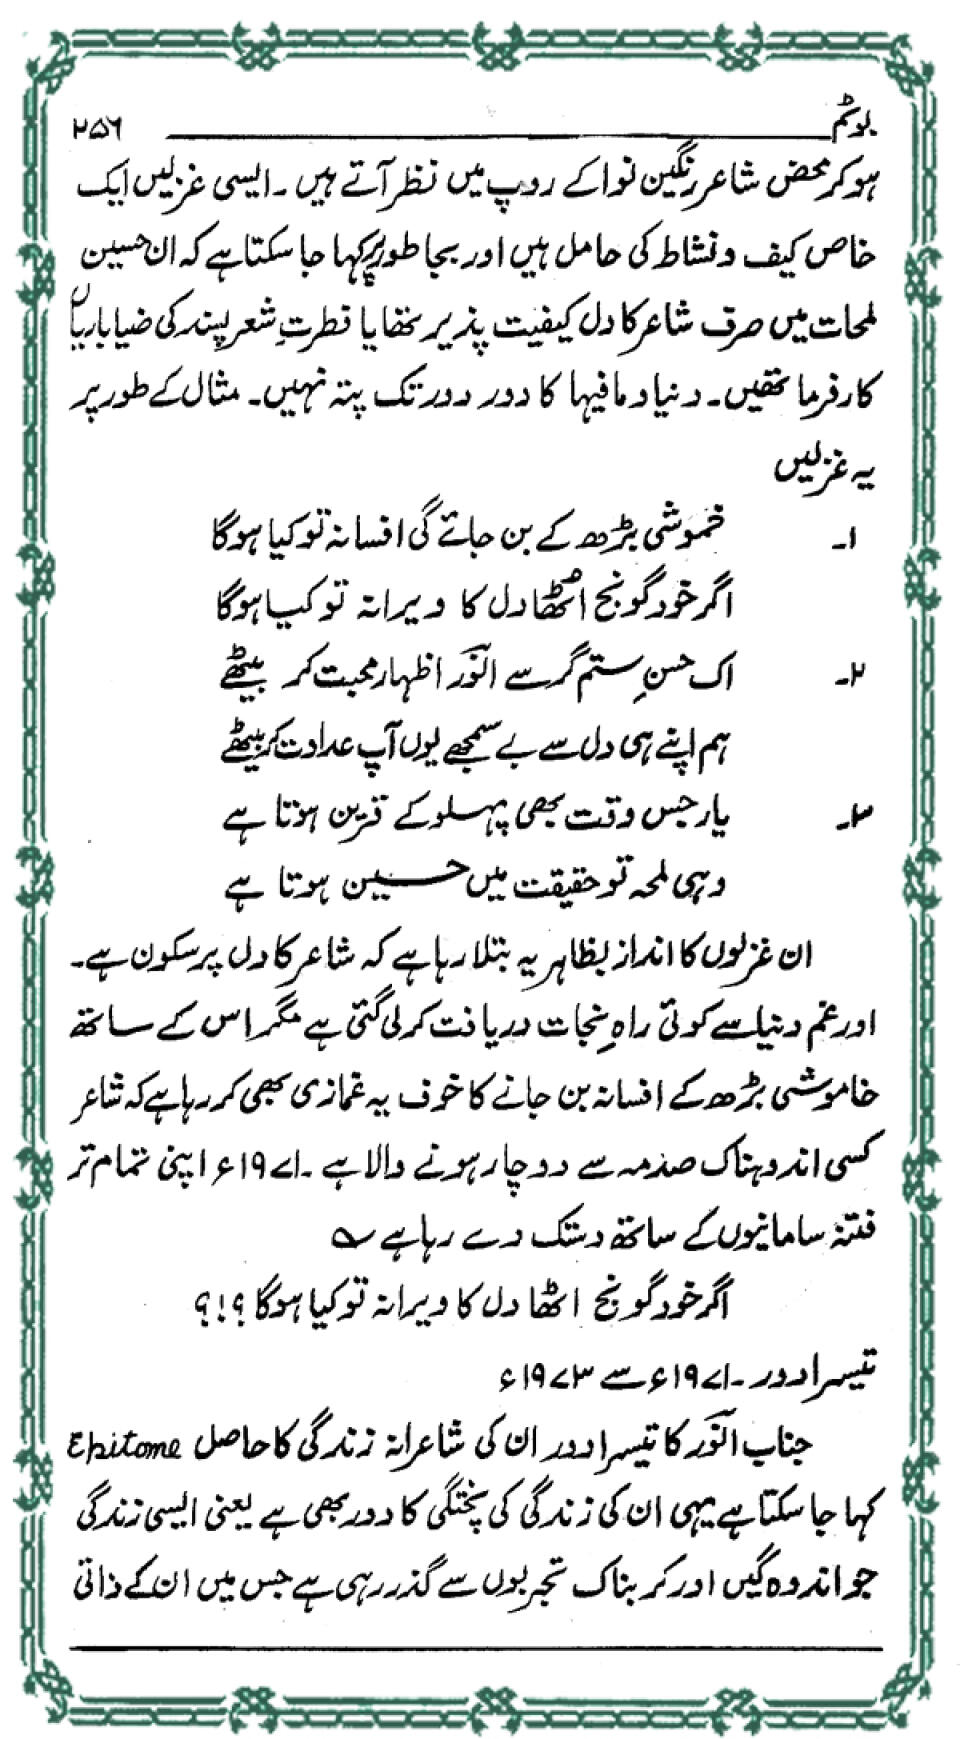 بوٹم ۲۵۶
ہو کر محض شاعر رنگین نوا کے روپ میں نظر آتے ہیں ۔ ایسی غزلیں ایک
خاص کیف و نشاط کی حامل ہیں اور بجا طور پر کہا جا سکتا ہے کہ ان حسین
لمحات میں صرف شاعر کا دل کیفیت پذیر تھا یا فطرتِ شعر پسند کی ضیا باریاں
کارفرما تھیں۔ دنیا و مافیہا کا دور دور تک پتہ نہیں۔ مثال کے طور پر
یہ غزلیں
۱۔ خموشی بڑھ کے بن جائے گی افسانہ تو کیا ہوگا
اگر خود گونج اٹھا دل کا ویرانہ تو کیا ہوگا
۲۔ اک حسنِ ستم گر سے انورؔ اظہار محبت کر بیٹھے
ہم اپنے ہی دل سے بے سمجھے یوں آپ عداوت کر بیٹھے
۳۔ یار جس وقت بھی پہلو کے قرین ہوتا ہے
وہی لمحہ تو حقیقت میں حسین ہوتا ہے
ان غزلوں کا انداز بظاہر یہ بتلا رہا ہے کہ شاعر کا دل پر سکون ہے۔
اور غم دنیا سے کوئی راہِ نجات دریافت کر لی گئی ہے مگر اس کے ساتھ
خاموشی بڑھ کے افسانہ بن جانے کا خوف یہ غمازی بھی کر رہا ہے کہ شاعر
کسی اندوہناک صدمہ سے دوچار ہونے والا ہے ۔ ۱۹۷۱ء اپنی تمام تر
فتنہ سامانیوں کے ساتھ دستک دے رہا ہے ؎
اگر خود گونج اٹھا دل کا ویرانہ تو کیا ہوگا ؟!؟
تیسرا دور ۔ ۱۹۷۱ء سے ۱۹۷۳ء
جناب انورؔ کا تیسرا دور ان کی شاعرانہ زندگی کا حاصل Epitome
کہا جا سکتا ہے یہی ان کی زندگی کی پختگی کا دور بھی ہے یعنی ایسی زندگی
جو اندوہ گیں اور کربناک تجربوں سے گذر رہی ہے جس میں ان کے ذاتی